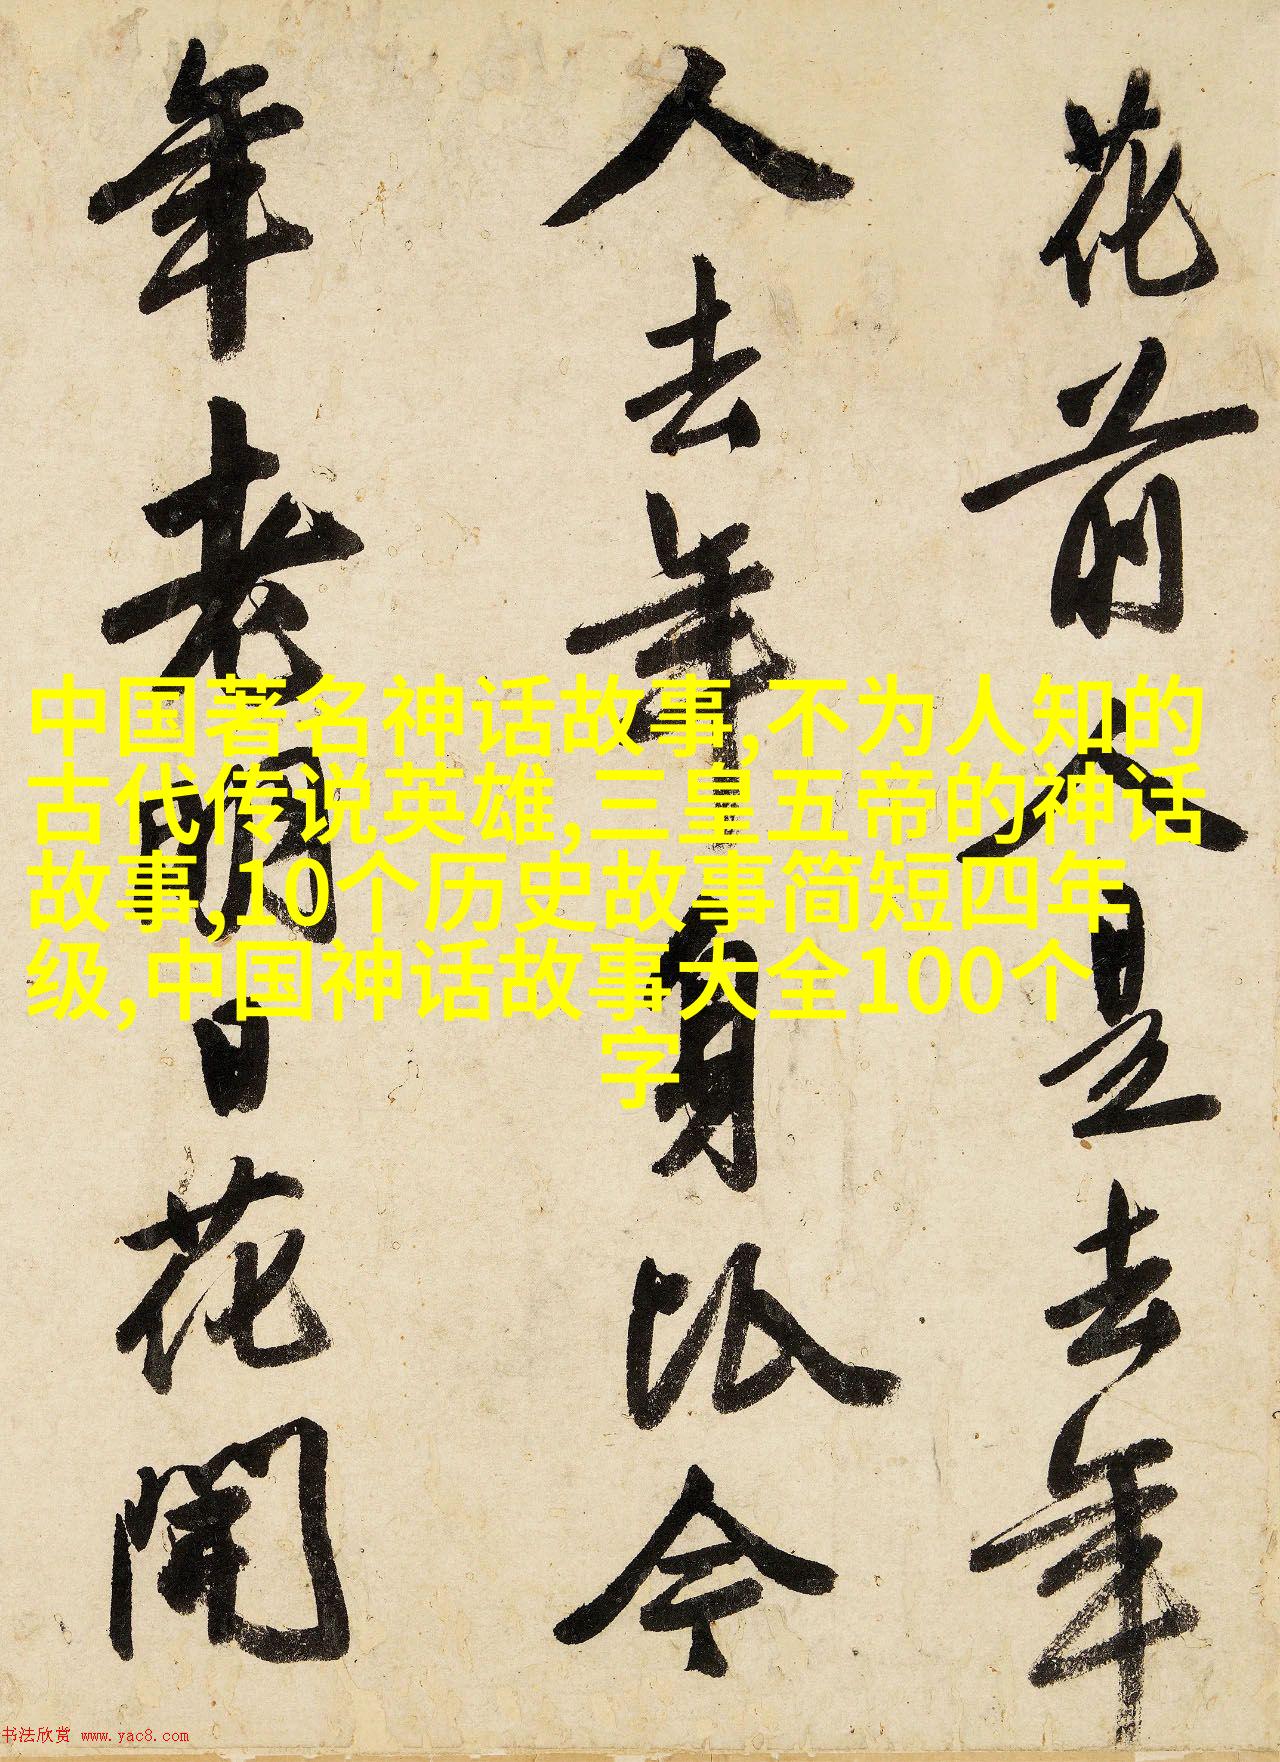 花前人是去年
人去年身比今
年老明日花開
中国著名神话故事,不为人知的
古代传说英雄,三皇五帝的神话
故事,10个历史故事简短四年
级,中国神话故事大全100个
字
书法欣赏 www.yac8.com